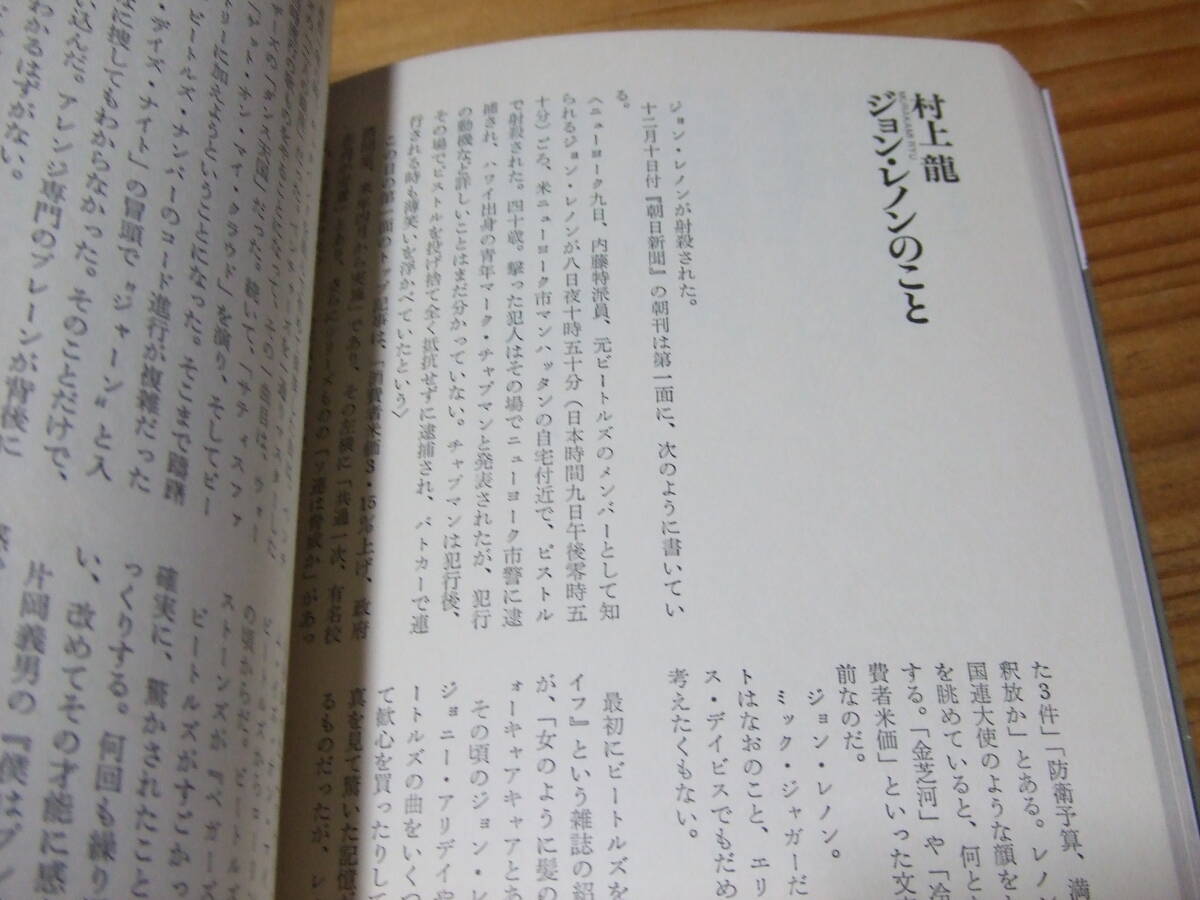 村上龍
MURAKAMI RYU
ジョン・レノンのこと
ジョン・レノンが射殺された。
十二月十日付『朝日新聞』の朝刊は第一面に、次のように書いてい
る。
〈ニューヨーク九日、内藤特派員、元ビートルズのメンバーとして知
られるジョン・レノンが八日夜十時五十分(日本時間九日午後零時五
十分)ごろ、米ニューヨーク市マンハッタンの自宅付近で、ピストル
で射殺された。四十歳。撃った犯人はその場でニューヨーク市警に逮
捕され、ハワイ出身の青年マーク・チャプマンと発表されたが、犯行
の動機など詳しいことはまだ分かっていない。チャプマンは犯行後、
その場でピストルを投げ捨て全く抵抗せずに逮捕され、パトカーで連
行される時も薄笑いを浮かべていたという〉
この日の第一面のトップ記事は、「消費者米価3・15%上げ、政府
であり、その左横に「共通一次、有名校
「ソ連は脅威か」があっ
た3件」「防衛予算、満
釈放か」とある。レノ
国連大使のような顔を
を眺めていると、何と
する。「金芝河」や「冷
費者米価」といった文
前なのだ。
ジョン・レノン。
ミック・ジャガーだ
トはなおのこと、エリ
ス・デイビスでもだめ
考えたくもない。
最初にビートルズを
イフ』という雑誌の紹
が、「女のように髪の
ォーキャアキャアとあ
その頃のジョン・レ
ジョニー・アリデイや
ートルズの曲をいくつ
て歓心を買ったりして
真を見て驚いた記憶が
るものだったが、レ
だった。続いて、「サティスファ
「ゲット・オフ・マイ・クラウド」を演り、そしてビー
トリーに加えようということになった。そこまで躊躇
ビートルズ・ナンバーのコード進行が複雑だった
・デイズ・ナイト」の冒頭で〝ジャーン〟と入
なに捜してもわからなかった。そのことだけで、
い込んだ。アレンジ専門のブレーンが背後に
わかるはずがない。
の頃からだ。ビートルズ
ストーンズが『ベガーズ
ビートルズがすごかっ
確実に、驚かされたこと
っくりする。何回も繰り
い、改めてその才能に感
片岡義男の『僕はプレ